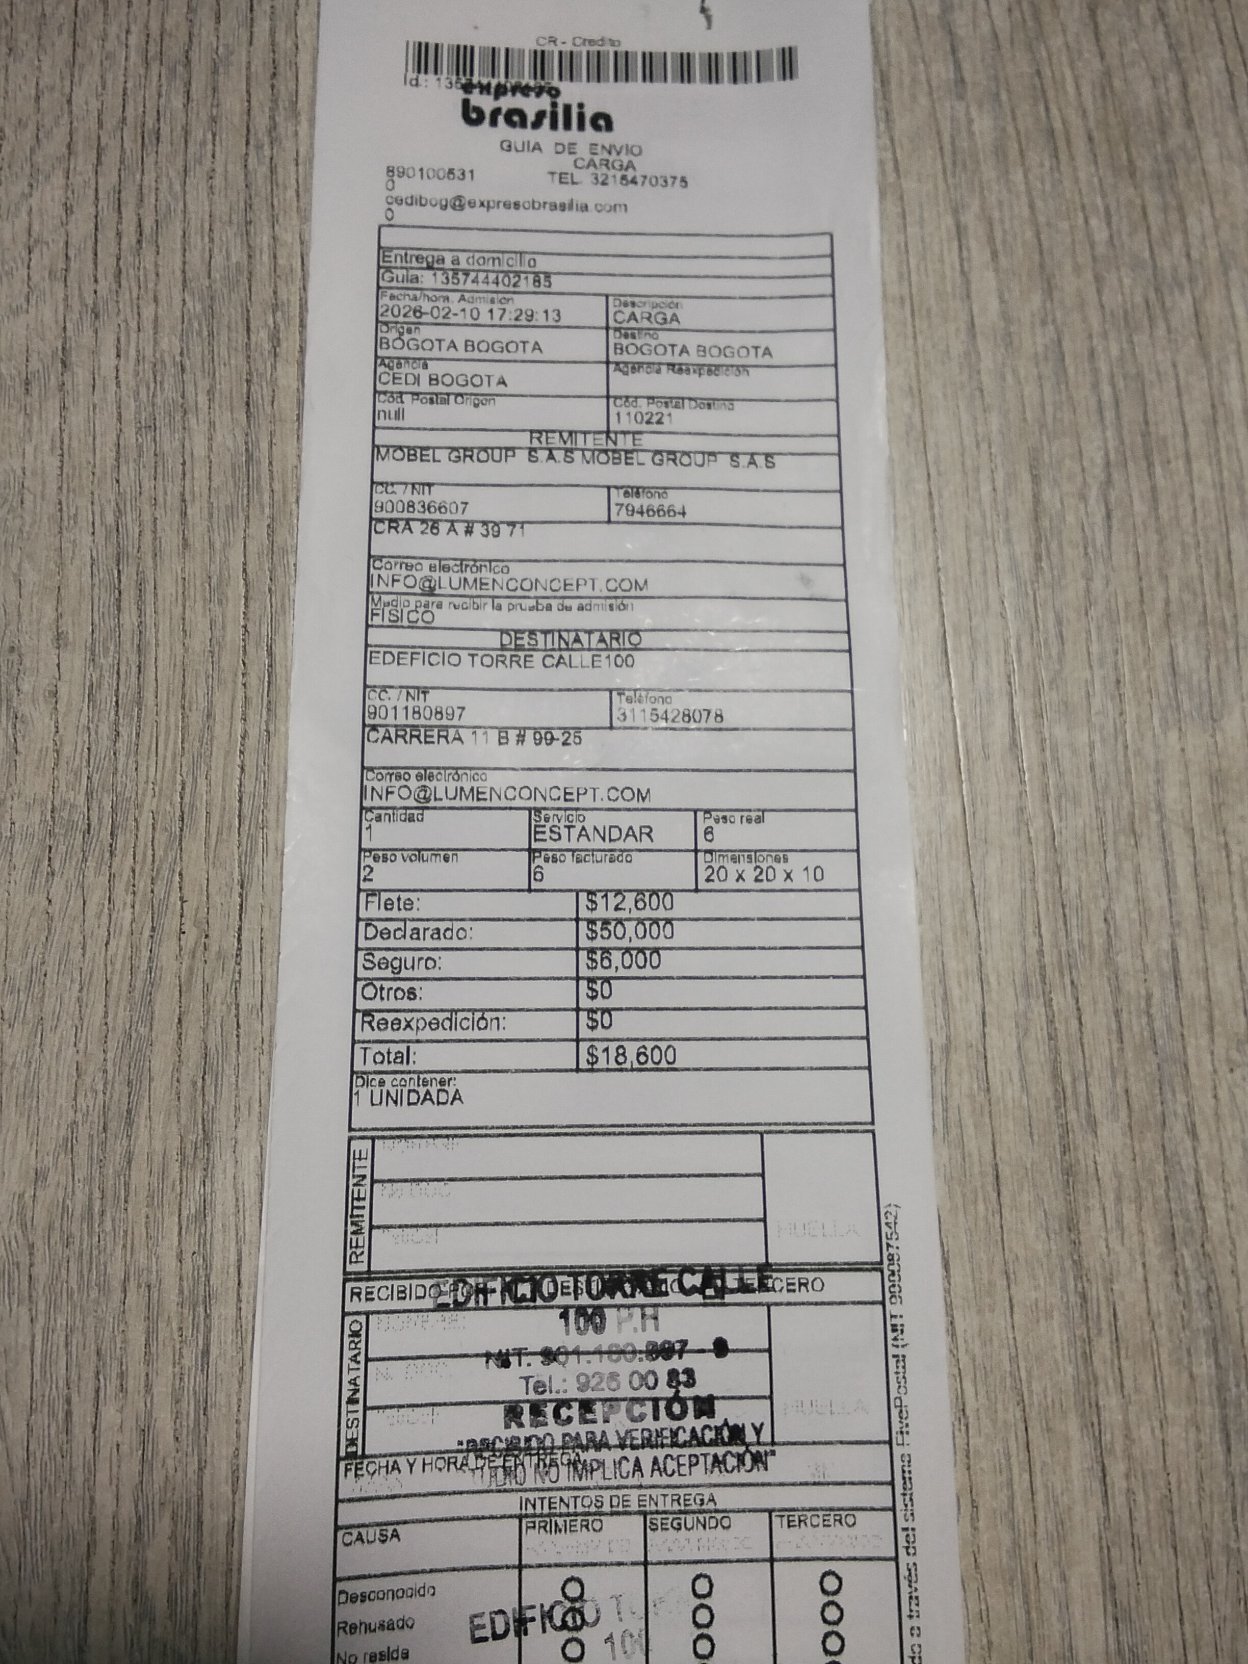 CR - Credito
expreso
brasilia
GUIA DE ENVIO
CARGA
890100531 TEL. 3215470375
0
cedibog@expresobrasilia.com
0
Entrega a domicilio
Guia: 135744402185
Fecha/hora. Admisión Descripción
2026-02-10 17:29:13 CARGA
Origen Destino
BOGOTA BOGOTA BOGOTA BOGOTA
Agencia Agencia Reexpedición
CEDI BOGOTA
Cód. Postal Origen Cód. Postal Destino
null 110221
REMITENTE
MOBEL GROUP S.A.S MOBEL GROUP S.A.S
CC. / NIT Teléfono
900836607 7946664
CRA 26 A # 39 71
Correo electrónico
INFO@LUMENCONCEPT.COM
Medio para recibir la prueba de admisión
FISICO
DESTINATARIO
EDEFICIO TORRE CALLE100
CC. / NIT Teléfono
901180897 3115428078
CARRERA 11 B # 99-25
Correo electrónico
INFO@LUMENCONCEPT.COM
Cantidad Servicio Peso real
1 ESTANDAR 6
Peso volumen Peso facturado Dimensiones
2 6 20 x 20 x 10
Flete: $12,600
Declarado: $50,000
Seguro: $6,000
Otros: $0
Reexpedición: $0
Total: $18,600
Dice contener:
1 UNIDADA
REMITENTE
HUELLA
RECIBIDO TERCERO
EDIFICIO TORRE CALLE
100 P.H
NIT. 901.180.897 - 9
Tel.: 926 00 83
RECEPCIÓN
"RECIBIDO PARA VERIFICACIÓN Y
NO IMPLICA ACEPTACIÓN"
DESTINATARIO
HUELLA
FECHA Y HORA DE ENTREGA
INTENTOS DE ENTREGA
CAUSA PRIMERO SEGUNDO TERCERO
Desconocido
Rehusado
No reside
EDIFICIO
100
a través del sistema FivePostal (NIT 900087542)